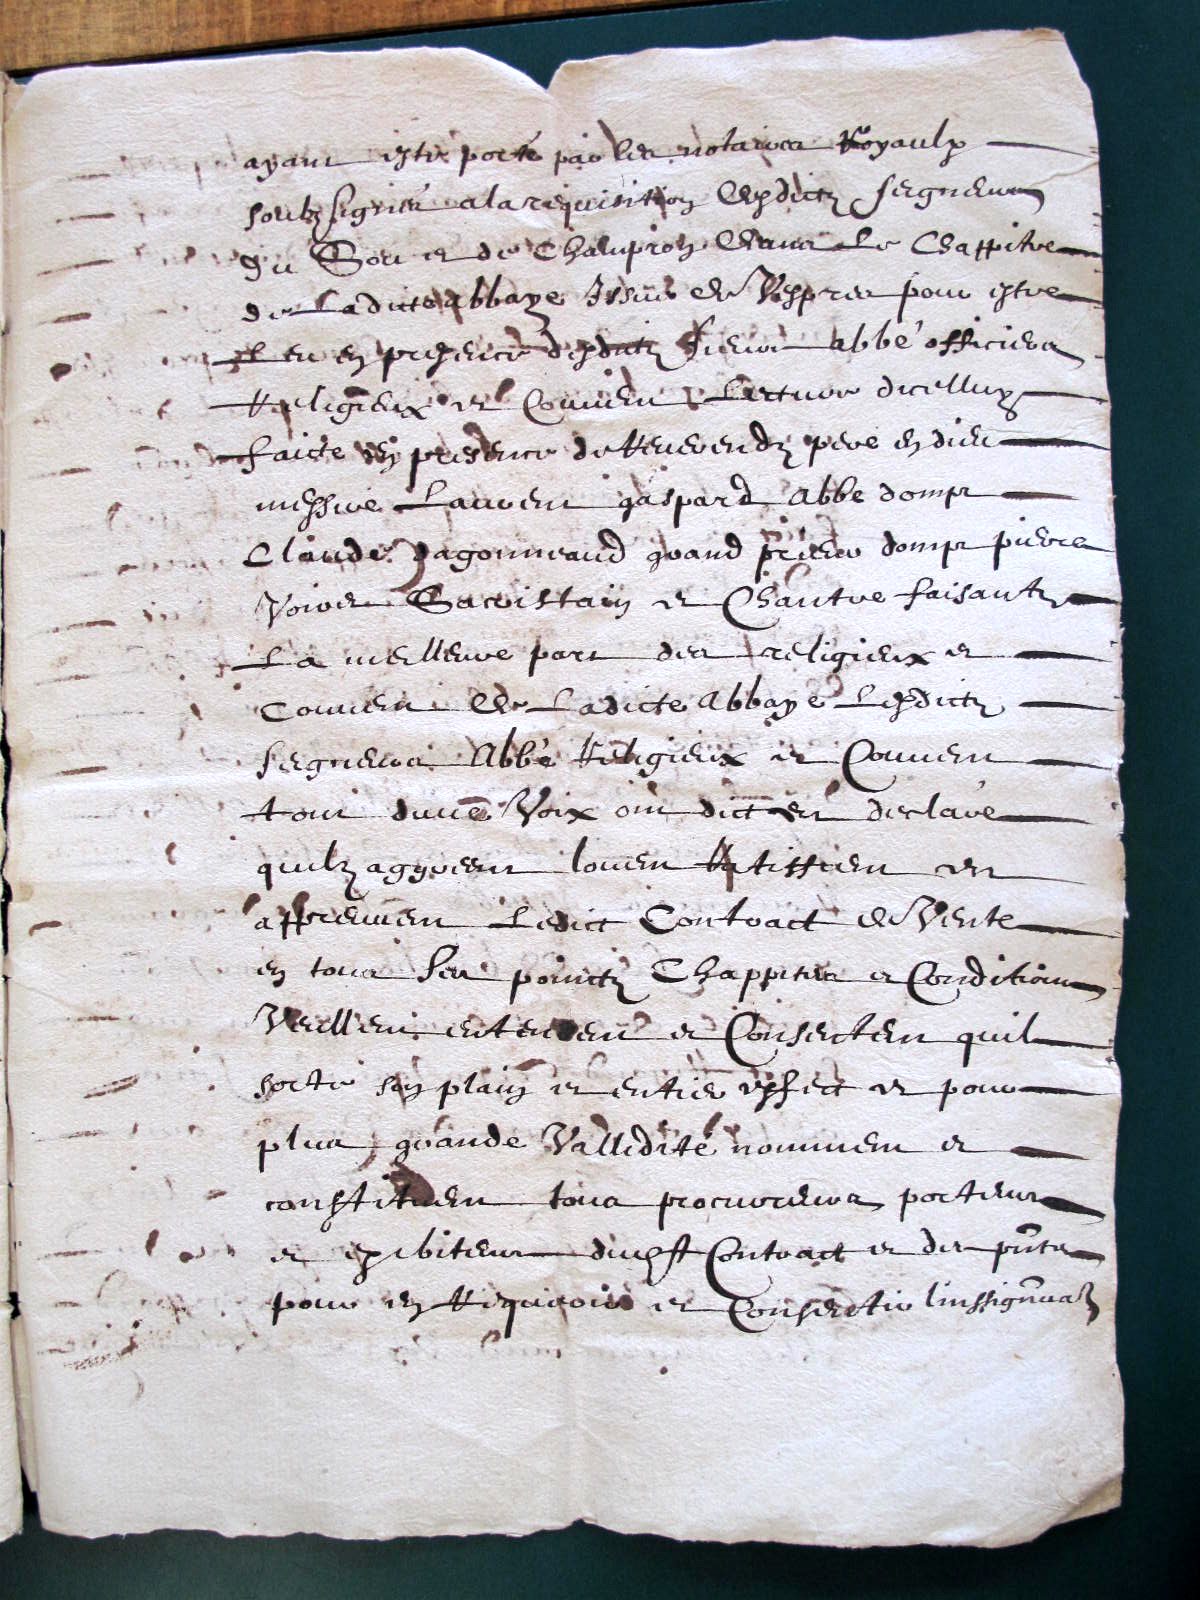 ayant esté porté par les notaires Royaulx
soubz signés a la requisition desdictz seigneurs
du et de Champron dans le Chappitre
de Ladicte abbaye Issue de Vespres pour estre
Leu en presence desdictz sieurs abbé officiers
Religieux et Couvent Lecture dicelluy
faicte en presence de Reverendz pere en dieu
messire Laurent gaspard abbe domp
Claude Dagonneaud grand prieur domp pierre
Voirer Sacristain et Chantre faisantz
La meilleure part des religieux et
Couvent de Ladicte abbaye Lesdictz
seigneurs Abbé Religieux et Couvent
tout dune Voix ont dict et declaré
quilz agreent louent Ratiffient et
appreuvent Ledict Contract de Vente
en tous ses poinctz Chappitres et Conditions
Veullent entendent et Consentent quil
sorte son plain et entier effect et pour
plus grande Vallidité nomment et
constituent tous procureurs porteurs
et exibiteurs dudict Contract et des pntes
pour en Requerir et Consentir linssignuaon